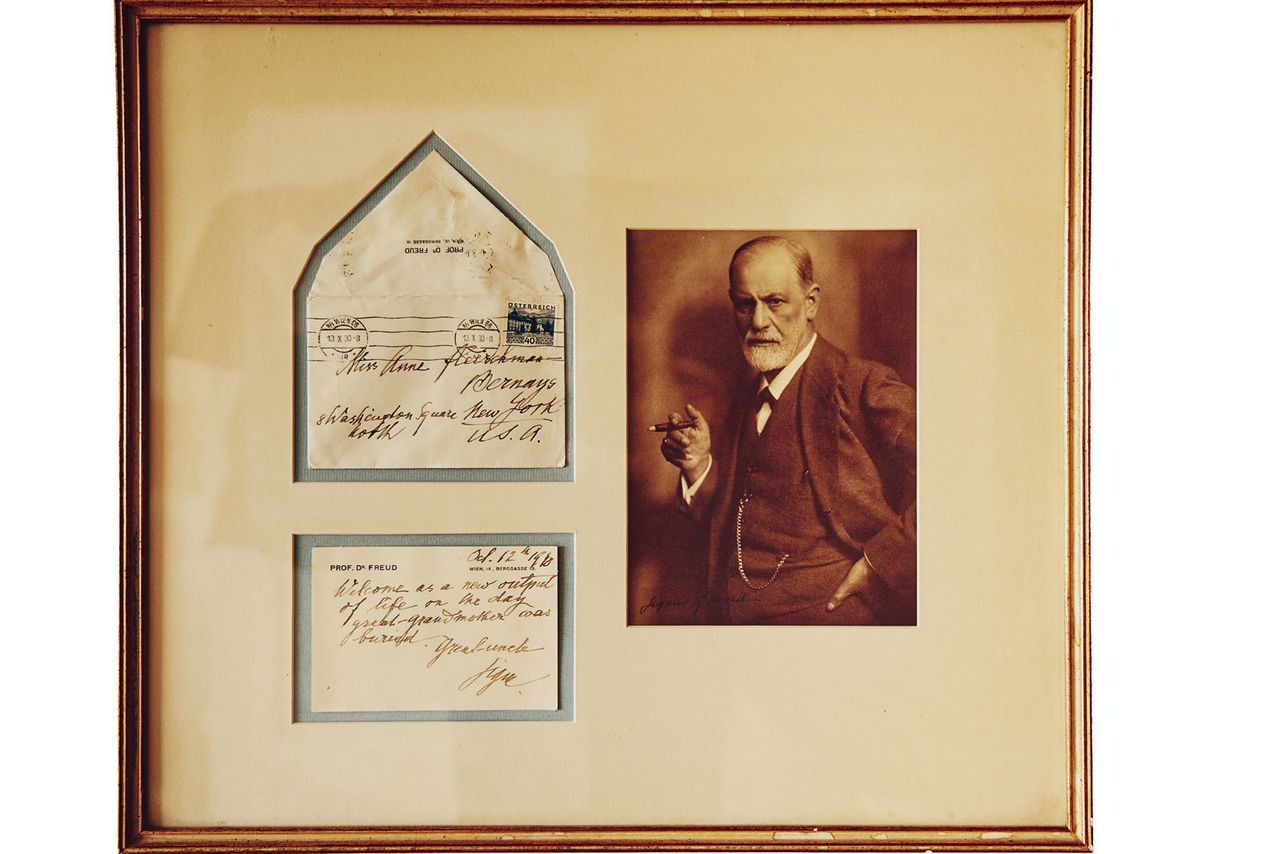 PROF. DR. FREUD
WIEN, IX., BERGGASSE 19.
ÖSTERREICH
40
13. X. 30-8
13. X. 30-8
Miss Anne Fleischman
Bernays
8 Washington Square New York
North U.S.A.
PROF. DR. FREUD
Oct. 12th 1930
WIEN, IX., BERGGASSE 19.
Welcome as a new output
of life on the day
great-grandmother was
buried. Great-uncle
Sigm